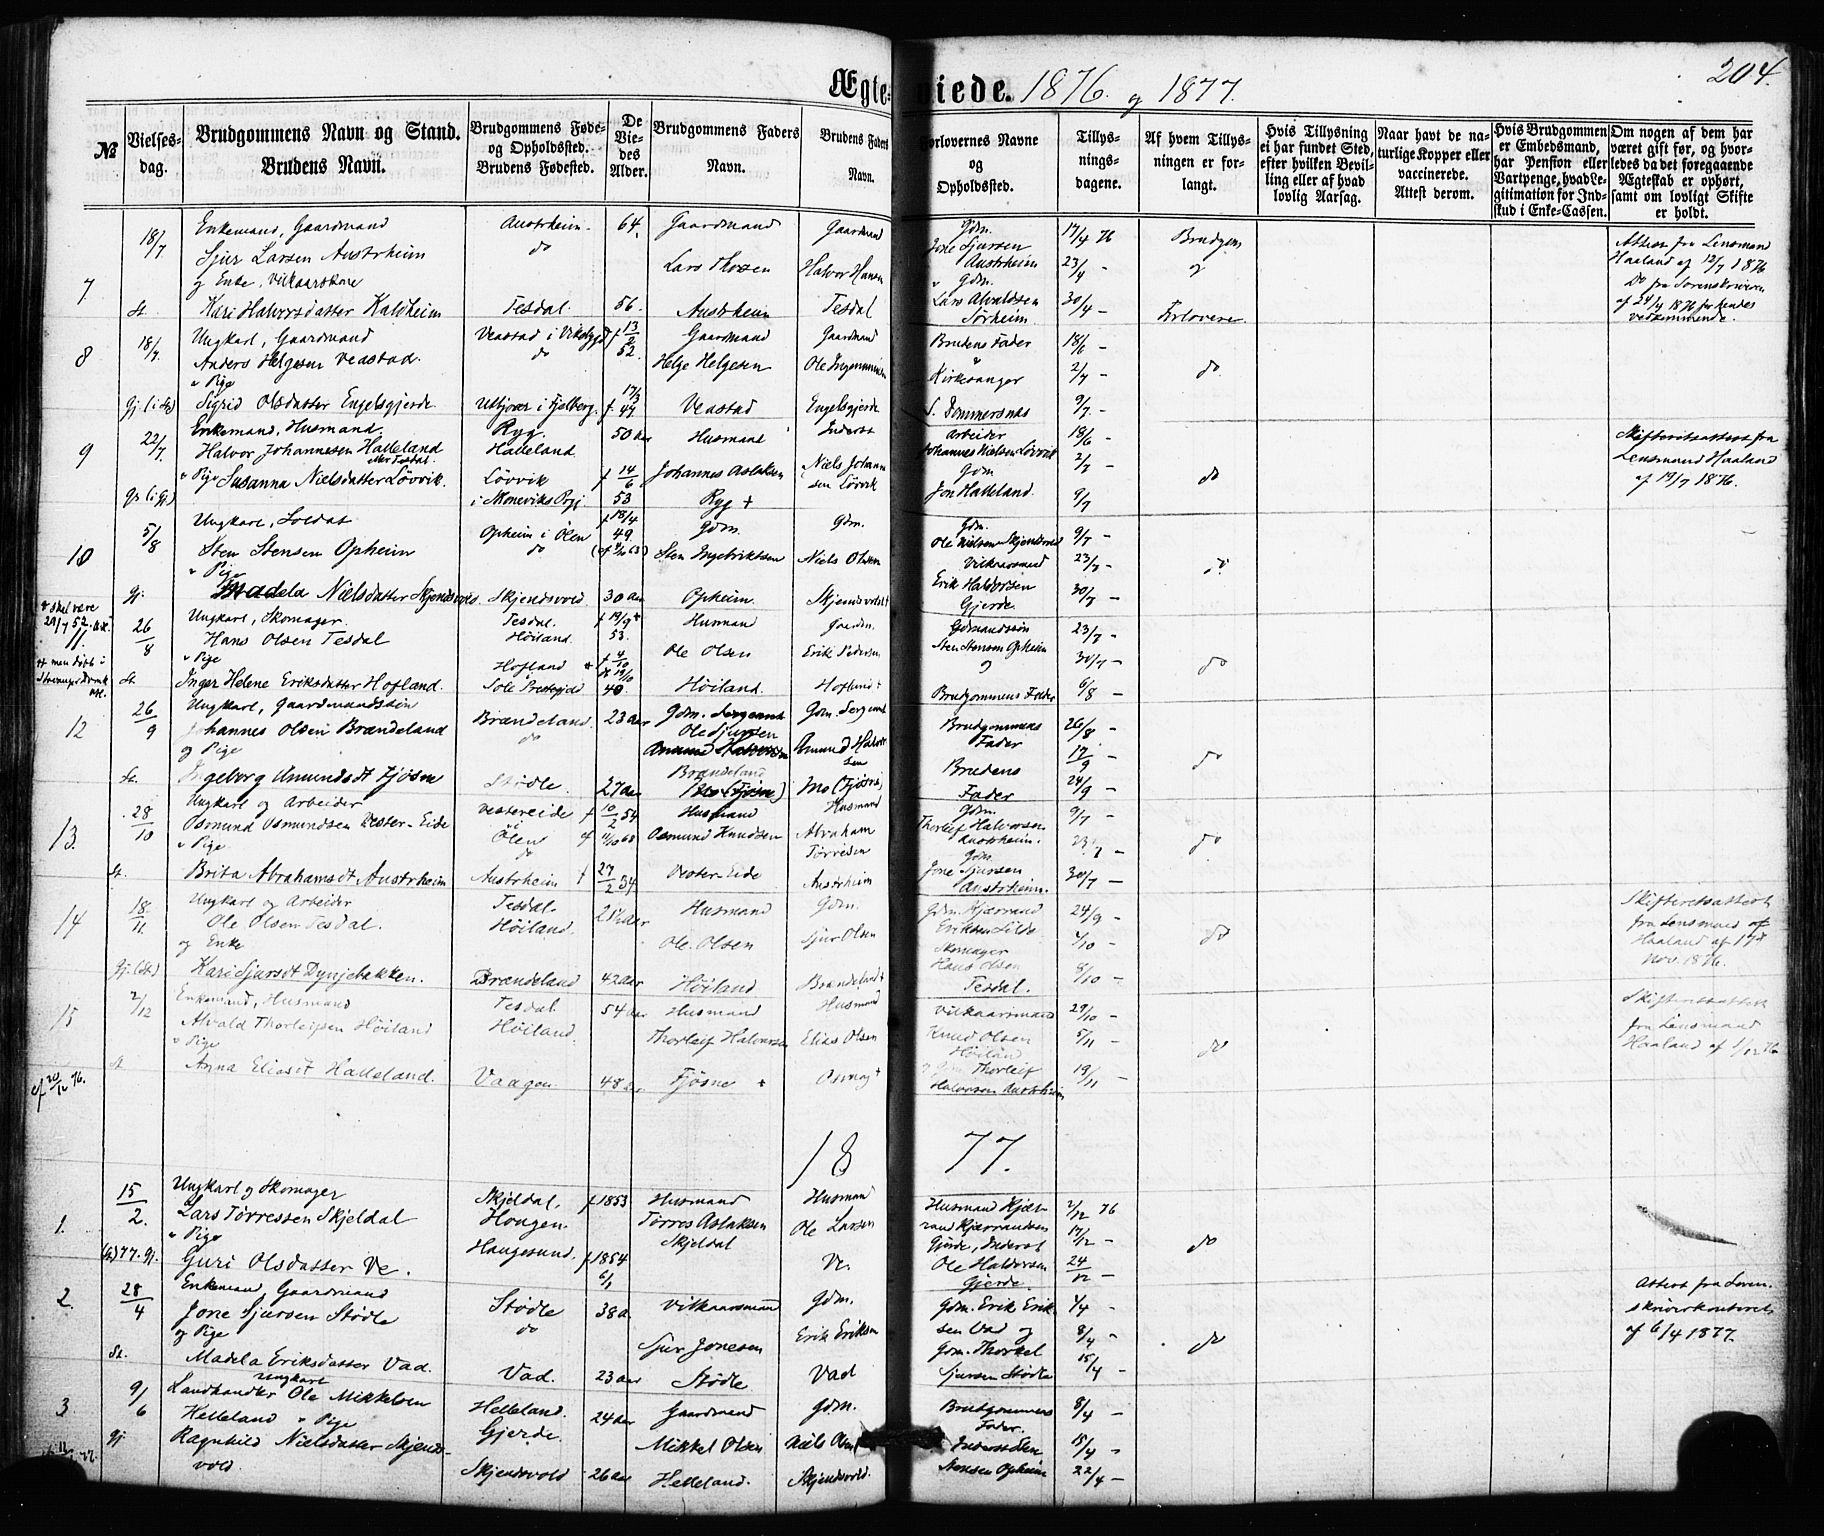 204.
Ægteviede. 1876. og 1877.
No
Vielses-dag.
Brudgommens Navn og Stand.
Brudens Navn.
Brudgommens Føde- og Opholdssted.
Brudens Fødested.
De Viedes Alder.
Brudgommens Faders Navn.
Brudens Faders Navn.
Forlovernes Navne og Opholdssted.
Tillysningsdagene.
Af hvem Tillysningen er forlangt.
Hvis Tillysning ei har fundet Sted, efter hvilken Bevilling eller af hvad lovlig Aarsag.
Naar havt de naturlige Kopper eller vaccinerede. Attest derom.
Hvis Brudgommen er Embedsmand, har Pension eller Vartpenge, hvad Legitimation for Indskud i Enke-Cassen.
Om nogen af dem har været gift før, og hvorledes da det foregaaende Ægteskab er ophørt, samt om lovligt Skifte er holdt.
7
18/7
Enkemand, Gaardmand
Sjur Larsen Austrheim
og Enke, Vilkaarskone
Kari Halvorsdatter Kaldheim
Austrheim
do
Tesdal
64
56
Gaardmand
Lars Thosen
Austrheim
Gaardmand
Halvor Hansen
Tesdal
Gdm.
Jone Sjursen
Austrheim
" Gdm.
Lars Alvaldsen
Sørheim
17/4 76
23/4 -
30/4 -
Brudgom
og
Forlovere
Attest fra Lensmand
Haaland af 12/7 1876
Do fra Sorenskriveren
af 24/4 1876 for hendes
vedkommende.
8
18/7
Gj. (i St)
Ungkarl, Gaardmand
Anders Helgesen Veastad
" Pige
Sigrid Olsdatter Engelsgjerde
Veastad i Vikebygd
do
Utsjoær i Fjelberg
f 13/2 52
f. 17/3 49
Gaardmand
Helge Helgesen
Veastad
Gaardmand
Ole Ingemundsen
Engelsgjerde
Brudens Fader
"
Kirkesanger
S. Dommersnæs
18/6 -
2/7 -
9/7 -
do
9
22/7
Enkemand, Husmand
Halvor Johannesen Halleland
" Pige Susanna Nielsdatter Løvvik
Ryg.
Halleland
Løvvik
i Skoneviks Prgj
50 aar
f 14/6 53
Husmand
Johannes Aslaksen
Ryg +
Inderst
Niels Johannesen Løvvik
Arbeider
Johannes Nielsen Løvvik
Gdm.
Jon Halleland
18/6 -
2/7
9/7
do
Skifteretsattest fra
Lensmand Haaland
af 19/7 1876.
10
5/8
Gj.
Ungkarl, Soldat
Sten Stensen Opheim
" Pige
Madela Nielsdatter Skjendsvold
Opheim i Ølen
do
Skjendsvold
f 18/4 49
30 aar
Gdm.
Sten Ingebriktsen
Opheim
Gdm.
Niels Olsen
Skjendsvold +
Gdm.
Ole Nielsen Skjendsvold
Vilkaarsmand
Erik Halvorsen
Gjerde
9/7 -
23/7 -
30/7 -
do
+ skal være
29/7 52
11.
++ men døbt i
Stavanger Domk
26/8
St.
Ungkarl, Skomager
Hans Olsen Tesdal
" Pige
Inger Helene Eriksdatter Hofland
Tesdal
Høiland
Hofland
Sole Prestegjeld
f 19/9 +
53.
f 4/10
49
Husman
Ole Olsen
Høiland
Gaardm.
Erik Pedersen
Hofland +
Gdmandssøn
Sten Stensen Opheim
og
Brudgommens Fader
23/7 -
30/7 -
6/8 -
do
12
26/9
St.
Ungkarl, Gaardmandssøn
Johannes Olsen Brændeland
og Pige
Ingeborg Amundsdt Fjøsne
Brændeland
do
Stødle
23 aar
27 aar
Gdm. Sergeant
Ole Sjursen
Brændeland
Gdm. Sergeant
Amund Halvorsen
Mo (Fjøsne)
Brudgommens
Fader
Brudens
Fader
26/8 -
17/9 -
24/9 -
do
13.
28/10
St.
Ungkarl og Arbeider
Osmund Osmundsen Vester-Eide
" Pige
Brita Abrahamsdt Austrheim
Vestereide
i Ølen
do
Austrheim
f 10/2 54
f 27/2 54
Husmand
Osmund Knudsen
Vester-Eide
Husmand
Abraham
Tørresen
Austrheim
Gdm.
Thorleif Halvorsen
Austrheim.
Gdm.
Jone Sjursen
Austrheim.
9/7 -
23/7 -
30/7 -
do
14
18/11.
Gj. (St.)
Ungkarl og Arbeider
Ole Olsen Tesdal.
og Enke
Kari Sjursdt Dynjebakken.
Tesdal
Høiland.
Brændeland
42 aar
Husmand
Ole Olsen
Høiland
Gdm.
Sjur Olsen
Brændeland +
Gdm. Kjærrand
Eriksen Silde
Skomager
Hans Olsen
Tesdal.
24/9 -
1/10 -
8/10 -
do
Skifteretsattest
fra Lensmand
Haaland af 17de
Nov. 1876.
15
2/12
St
Enkemand, Husmand
Alvald Thorleifsen Høiland
" Pige
Anna Eliasdt Halleland.
Tesdal
Høiland.
Vaagen
54 aar
48 aar
Husmand
Thorleif Halvorsen
Fjøsne +
Husmand
Elias Olsen
Vilkaarsmand
Knud Olsen
Høiland
" Gdm. Thorleif
Halvorsen Austrheim
29/10 -
5/11 -
19/11 -
do
Skifteretsattest
fra Lensmand
Haaland af 1/12 76
cf 20/12 76.
1877.
1.
15/2.
77. Gj.
Ungkarl og Skomager
Lars Tørressen Skjeldal
" Pige
Guri Olsdatter Ve.
Skjeldal,
Hougen.
Haugesund.
f 1853
f 1854
6/1
Husmand
Tørres Aslaksen
Skjeldal
Husmand
Ole Larsen
Ve.
Husmand Kjær-
rand Kjærrandsen
Gjerde, Inderst
Ole Halvorsen
Gjerde
2/12 76
17/12 -
24/12 -
do
2.
28/4
St.
Enkemand, Gaardmand
Jone Sjursen Stødle
og Pige
Madela Eriksdatter Vad.
Stødle
do
Vad.
38 a.
23 aar
Vilkaarsmand
Sjur Jonesen
Stødle
Gdm.
Erik Eriksen
Vad
Gdm. Erik Erik-
sen Vad og
Gdm. Thorkel
Sjursen Stødle
1/4 -
8/4 -
15/4 -
do
Attest fra Soren-
skriverkontoret
af 6/4 1877.
3
9/6
Gj
Ungkarl
Landhandler Ole Mikkelsen
Helleland " Pige
Ragnhild Nielsdatter Skjends-
vold
Helleland.
Gjerde.
Skjendsvold
24 aar
26 aar
Gaardmand
Mikkel Olsen
Helleland.
Gdm.
Niels Olsen
Skjendsvold.
Brudgommens
Fader.
Inderst Sten
Stensen Opheim
8/4 -
15/4 -
22/4 -